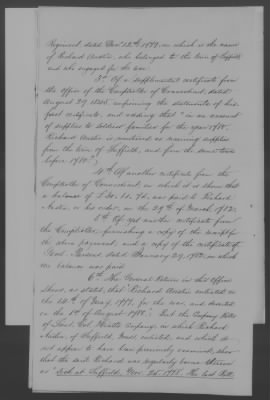 Regiment, dated Dec. 12th 1777, on which is the name
of Richard Austin, who belonged to the town of Suffield
and who engaged for the war.
3d. Of a supplemental certificate from
the office of the Comptroller of Connecticut, dated
August 29 1835, confirming the statements of his
first certificate, and adding that "in an account
of supplies to soldiers' families for the year 1780,
Richard Austin is numbered as receiving supplies
from the town of Suffield, and from the same town
before 1780."
4th. Of another certificate from the
Comptroller of Connecticut, in which it is shown that
a balance of was paid to Richard
Austin, or his order, on the 29th of March, 1782.
5th. Of yet another certificate from
the Comptroller, furnishing a copy of the receipt for
the above payment, and a copy of the certificate of
dated on which
the balance was paid.
6th. The General Returns in this Office
show, as stated, that "Richard Austin enlisted on
the 14th of May, 1777, for the war, and deserted
on the 1st of August 1780". But the Company Rolls
of Company, in which Richard
Austin, of Suffield, enlisted, and which do
not appear to have been previously examined, show
that the said Richard was regularly borne thereon
as "Sick at Suffield, Nov. 1778. The last Roll,